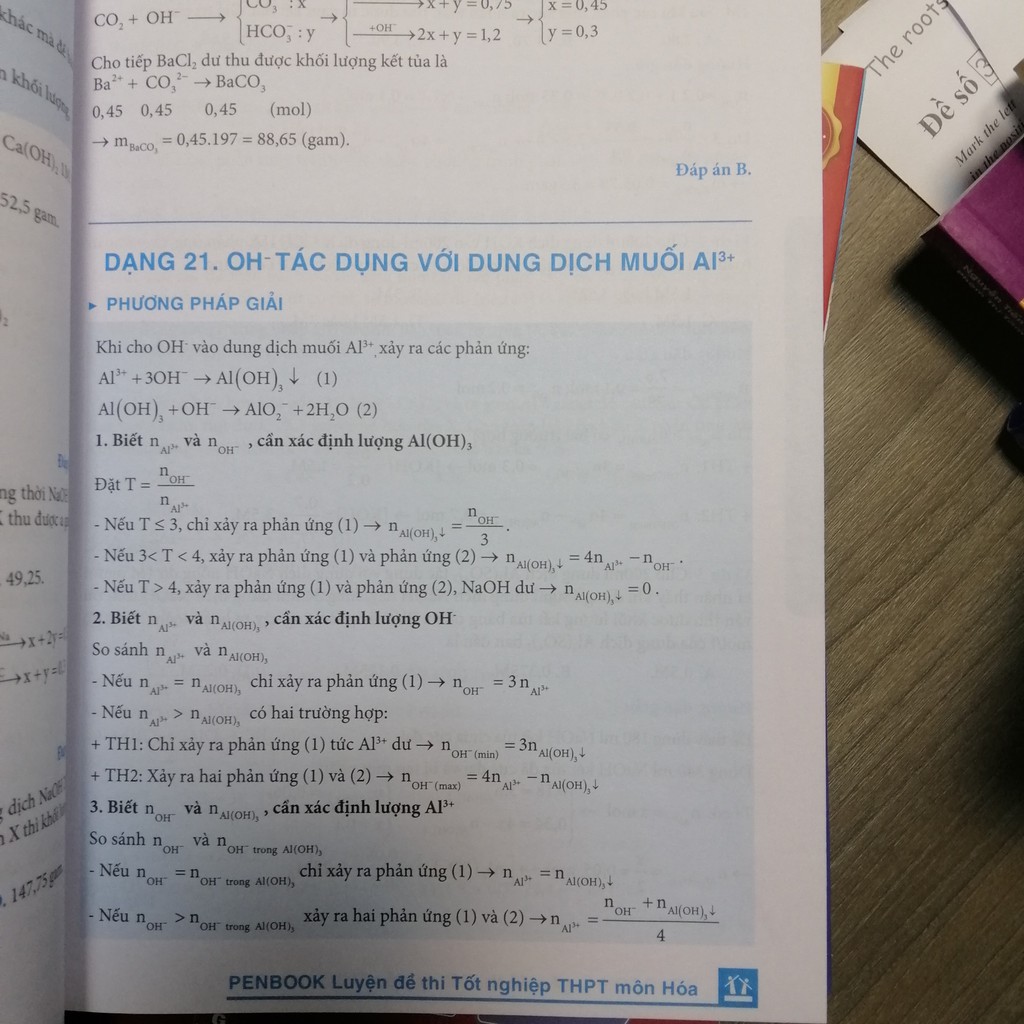 CO₂ + OH⁻ → { CO₃ : x → { → x + y = 0,75 → { x = 0,45
HCO₃⁻ : y +OH⁻ → 2x + y = 1,2 y = 0,3
Cho tiếp BaCl₂ dư thu được khối lượng kết tủa là
Ba²⁺ + CO₃²⁻ → BaCO₃
0,45 0,45 0,45 (mol)
→ m BaCO₃ = 0,45.197 = 88,65 (gam).
Đáp án B.
DẠNG 21. OH⁻ TÁC DỤNG VỚI DUNG DỊCH MUỐI Al³⁺
▸ PHƯƠNG PHÁP GIẢI
Khi cho OH⁻ vào dung dịch muối Al³⁺ xảy ra các phản ứng:
Al³⁺ + 3OH⁻ → Al(OH)₃↓ (1)
Al(OH)₃ + OH⁻ → AlO₂⁻ + 2H₂O (2)
1. Biết n Al³⁺ và n OH⁻ , cần xác định lượng Al(OH)₃
Đặt T = n OH⁻ / n Al³⁺
- Nếu T ≤ 3, chỉ xảy ra phản ứng (1) → n Al(OH)₃↓ = n OH⁻ / 3 .
- Nếu 3< T < 4, xảy ra phản ứng (1) và phản ứng (2) → n Al(OH)₃↓ = 4n Al³⁺ − n OH⁻ .
- Nếu T > 4, xảy ra phản ứng (1) và phản ứng (2), NaOH dư → n Al(OH)₃↓ = 0 .
2. Biết n Al³⁺ và n Al(OH)₃ , cần xác định lượng OH⁻
So sánh n Al³⁺ và n Al(OH)₃
- Nếu n Al³⁺ = n Al(OH)₃ chỉ xảy ra phản ứng (1) → n OH⁻ = 3n Al³⁺
- Nếu n Al³⁺ > n Al(OH)₃ có hai trường hợp:
+ TH1: Chỉ xảy ra phản ứng (1) tức Al³⁺ dư → n OH⁻(min) = 3n Al(OH)₃↓
+ TH2: Xảy ra hai phản ứng (1) và (2) → n OH⁻(max) = 4n Al³⁺ − n Al(OH)₃↓
3. Biết n OH⁻ và n Al(OH)₃ , cần xác định lượng Al³⁺
So sánh n OH⁻ và n OH⁻ trong Al(OH)₃
- Nếu n OH⁻ = n OH⁻ trong Al(OH)₃ chỉ xảy ra phản ứng (1) → n Al³⁺ = n Al(OH)₃↓
- Nếu n OH⁻ > n OH⁻ trong Al(OH)₃ xảy ra hai phản ứng (1) và (2) → n Al³⁺ = n OH⁻ + n Al(OH)₃↓ / 4
PENBOOK Luyện đề thi Tốt nghiệp THPT môn Hóa
khác mà để
khối lượng
Ca(OH)₂
52,5 gam.
thời NaOH
thu được
49,25.
→ x + 2y =
→ x + y =
dịch NaOH
X thì khối
147,75 gam
The roots
Đề số 3
Mark the left
in the